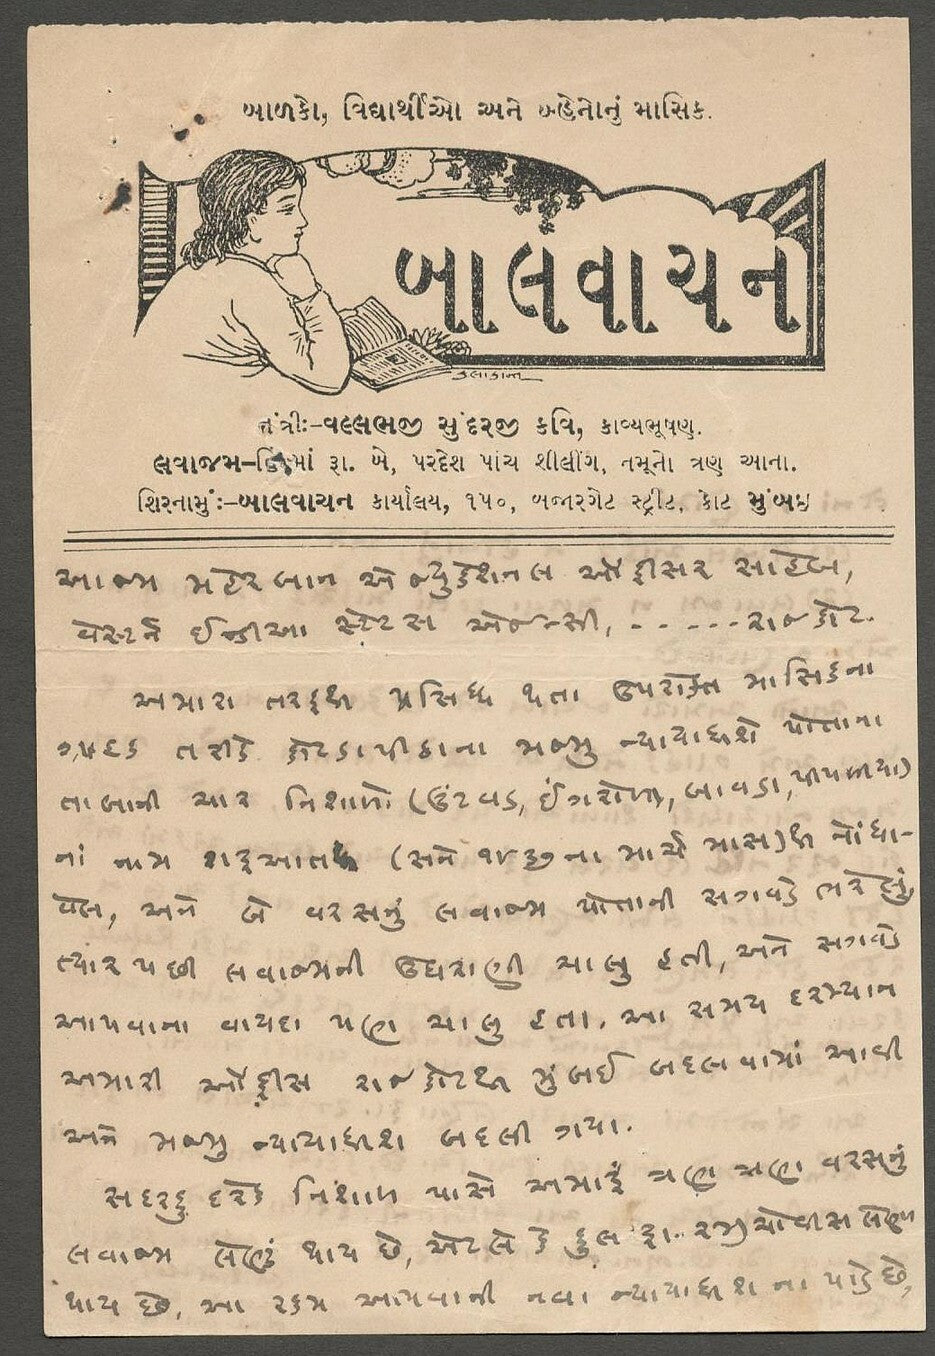 બાળકો, વિદ્યાર્થીઓ અને બ્હેનોનું માસિક.
બાલવાચન
કલાકાન્ત
તંત્રીઃ-વલ્લભજી સુંદરજી કવિ, કાવ્યભૂષણ.
લવાજમ-હિંદમાં રૂા. બે, પરદેશ પાંચ શીલીંગ, નમૂનો ત્રણ આના.
શિરનામું:-બાલવાચન કાર્યાલય, ૧૫૦, બજારગેટ સ્ટ્રીટ, કોટ મુંબઇ
આજમ મહેરબાન એજ્યુકેશનલ ઓફીસર સાહેબ,
વેસ્ટર્ન ઈન્ડીઆ સ્ટેટસ એજન્સી, - - - - - રાજકોટ.
અમારા તરફથી પ્રસિધ્ધ થતા ઉપરોક્ત માસિકના
ગ્રાહક તરીકે કોટડાપીઠાના મજમુ ન્યાયાધીશે પોતાના
તાબાની ચાર નિશાળો (ઉંટવડ, ઈંગરોળા, બાવડા, પીપળીયા)
નાં નામ શરૂઆતથી (સને ૧૯૩૭ના માર્ચ માસ)થી નોંધા-
વેલ, અને બે વરસનું લવાજમ પોતાની સગવડે ભરેલું,
ત્યાર પછી લવાજમની ઉઘરાણી ચાલુ હતી, અને સગવડે
આપવાના વાયદા પણ ચાલુ હતા. આ સમય દરમ્યાન
અમારી ઓફીસ રાજકોટથી મુંબઈ બદલવામાં આવી
અને મજમુ ન્યાયાધીશ બદલી ગયા.
સદરહુ દરેક નિશાળ પાસે અમારું ત્રણ ત્રણ વરસનું
લવાજમ લેણું થાય છે, એટલે કે કુલ રૂા. ચોવીસ લેણા
થાય છે. આ રકમ આપવાની નવા ન્યાયાધીશ ના પાડે છે,